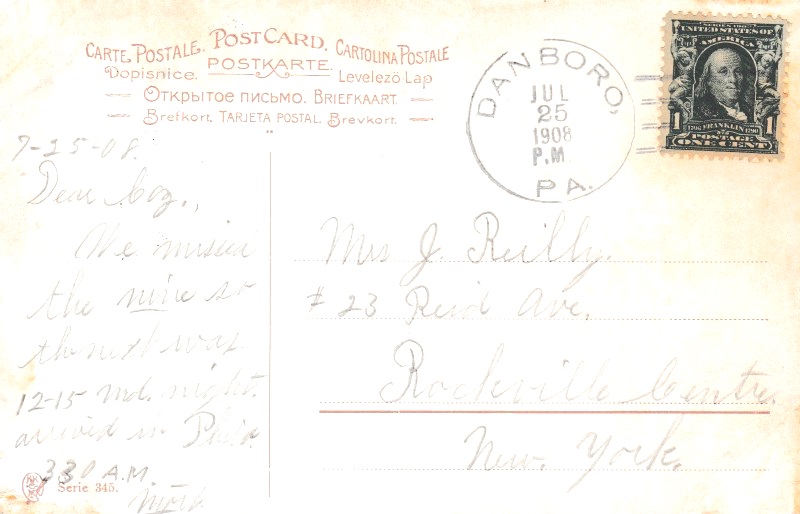 CARTE POSTALE. POST CARD. CARTOLINA POSTALE
Dopisnice. POSTKARTE. Levelező Lap
Открытое письмо. BRIEFKAART.
Brefkort. TARJETA POSTAL. Brevkort.
DANBORO,
JUL
25
1908
P.M.
PA.
SERIES 1902
UNITED STATES OF
AMERICA
1706 FRANKLIN 1790
1 1
ONE CENT
7-25-08.
Dear Coz.,
We missed
the nine so
the next was
12-15 Md. night.
arrived in Phila
330 A.M.
Serie 345.
Mrs J. Reilly.
# 23 Reid Ave.
Rockville Centre.
New. York.